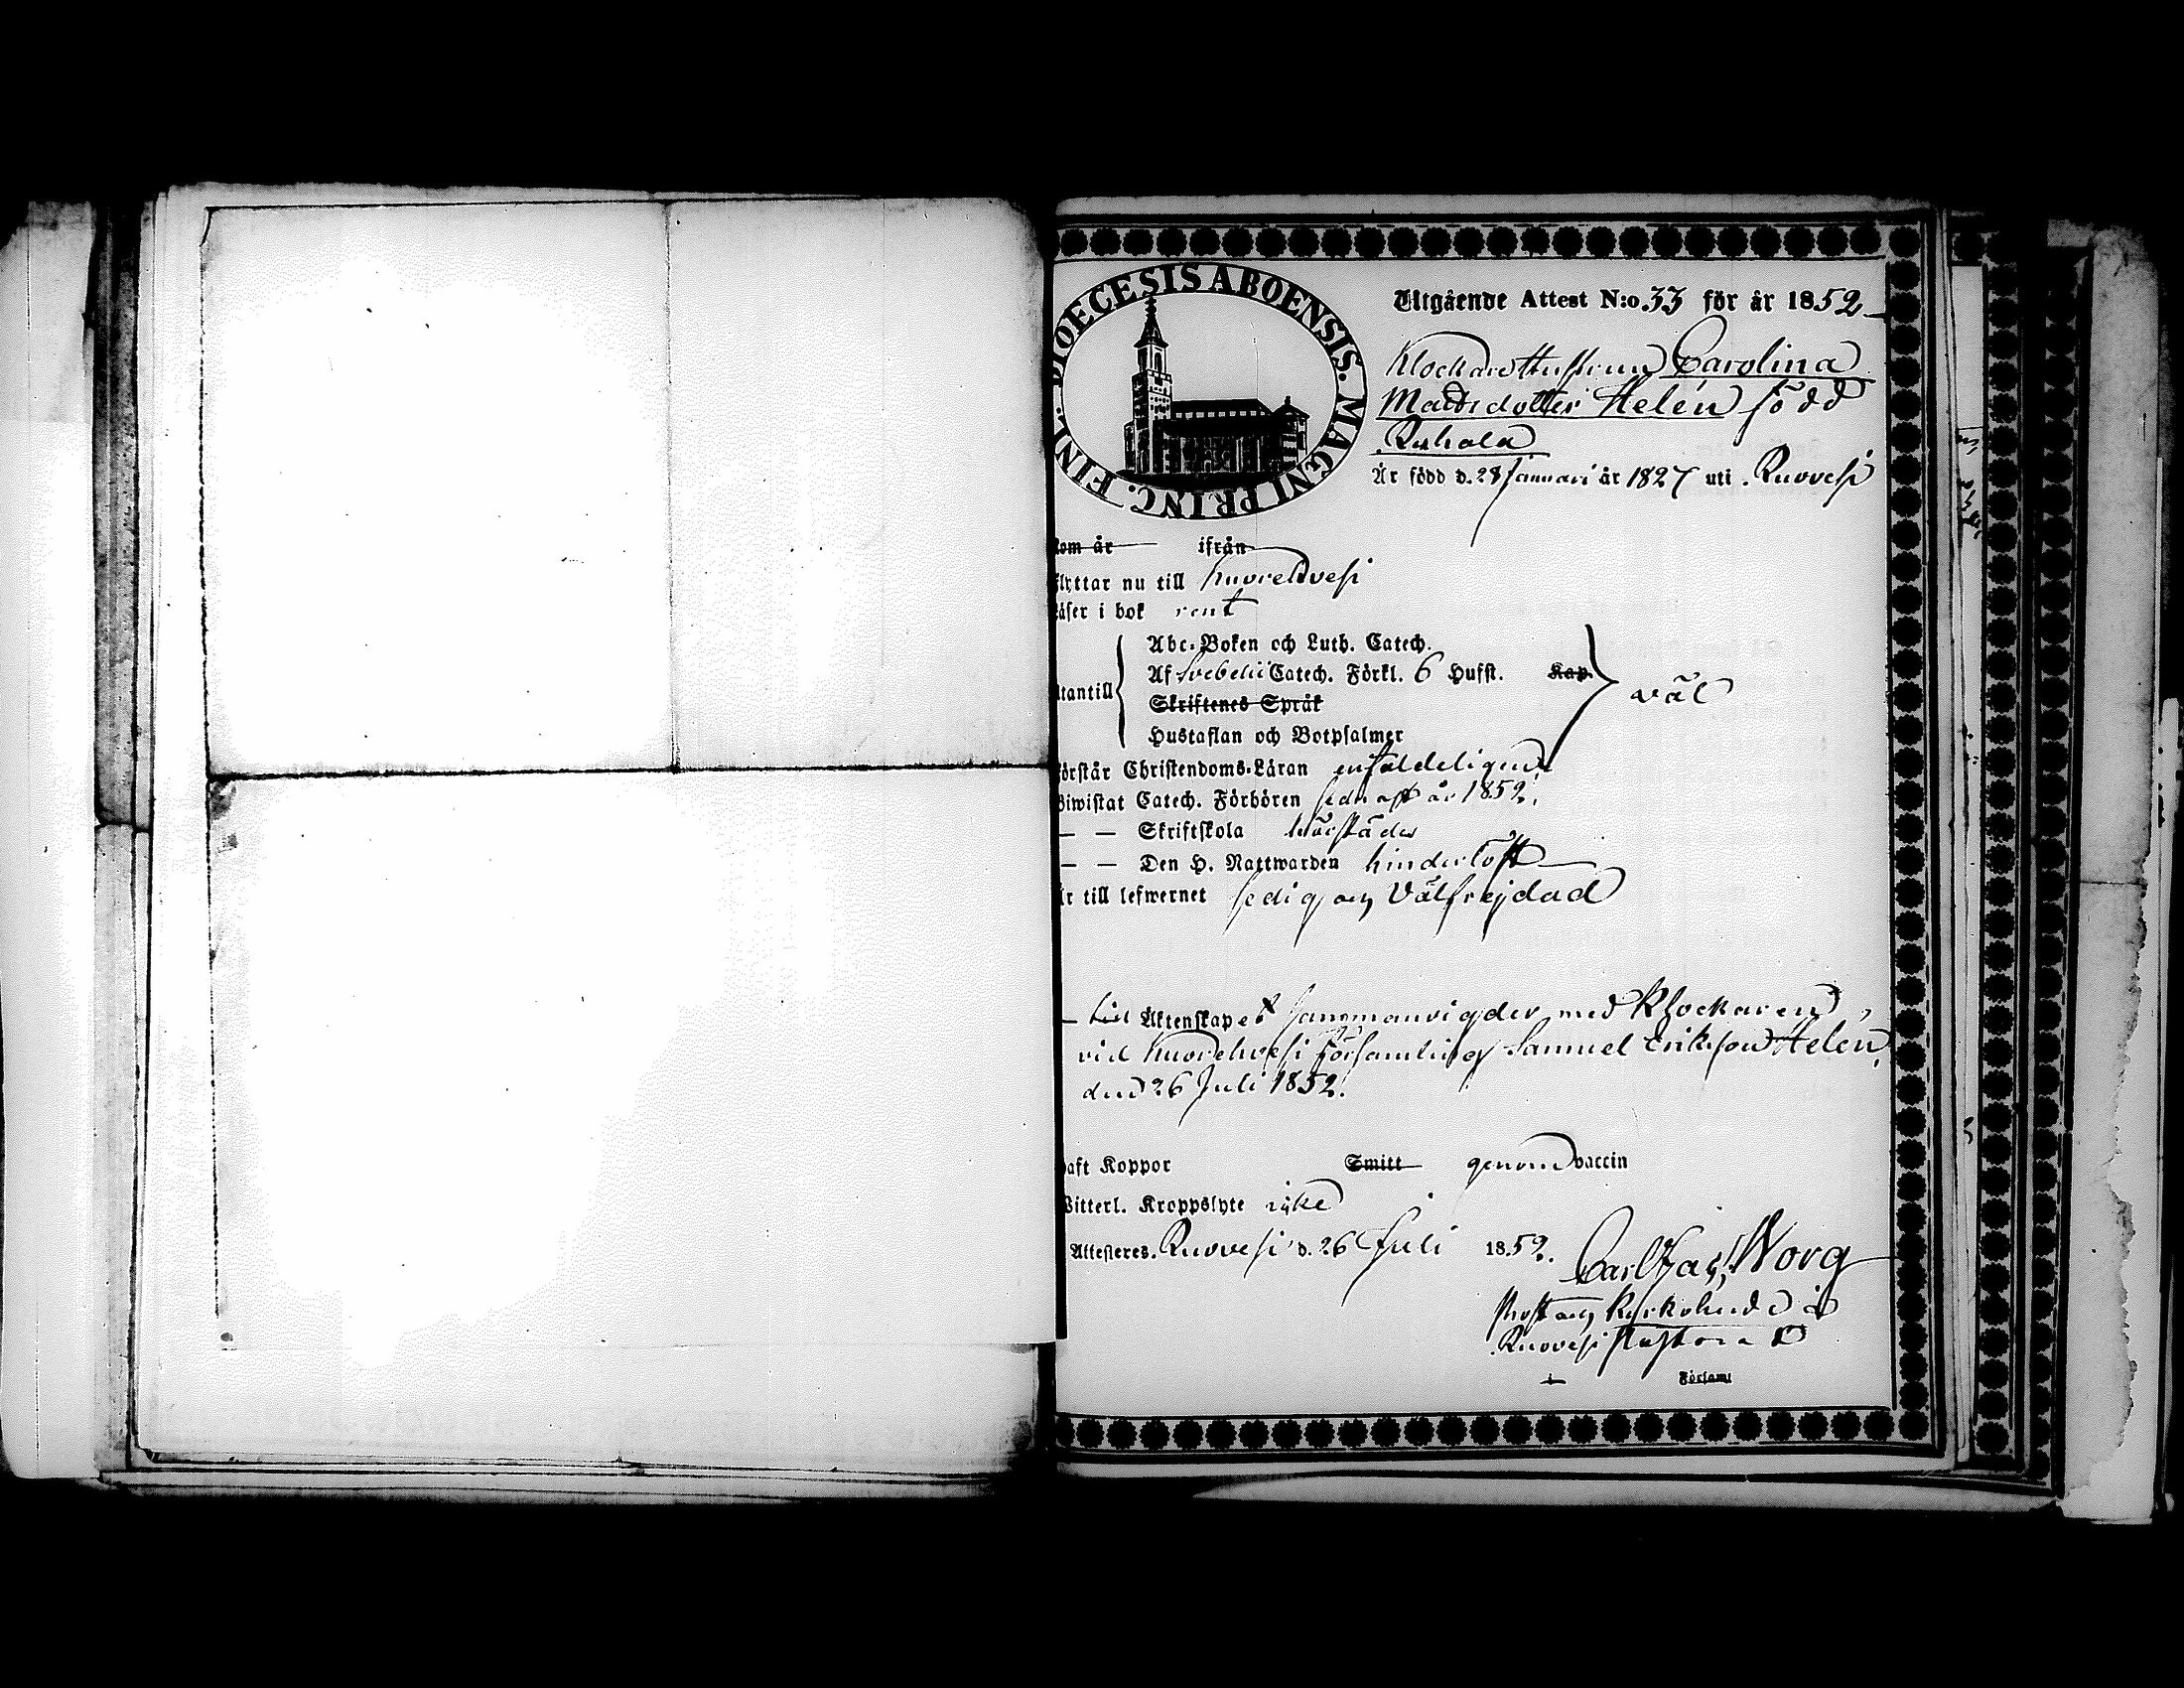 DIOECESIS ABOENSIS. MAGNI PRINC. FINL.
Utgående Attest N:o 33 för år 1852
Klockarehustrun Carolina
Matsdotter Helén född
Ruhala
Är född d. 28 Januari år 1827 uti Ruovesi
kom år ifrån
flyttar nu till Kuorehvesi
läser i bok rent
Abc-Boken och Luth. Catech.
Af Svebelii Catech. Förkl. 6 Hufst. Kap.
utantill väl
Skriftenes Språk
Hustaflan och Botpsalmer
förstår Christendoms-Läran enfaldeligen
Biwistat Catech. Förhören sednast år 1852.
— — Skriftskola härstädes
— — Den H. Nattwarden hinderlöst
Är till lefwernet sedig och Välfrejdad
— till Äktenskapet sammanvigder med Klockaren
vid Kuorehvesi Församling Samuel Eriksson Helén,
den 26 Juli 1852.
haft Koppor Smitt genom vaccin
Witterl. Kroppslyte icke
Attesteres. Ruovesi d. 26 Juli 1852. Carl Zach. Norg
Prost och Kyrkoherde i
Ruovesi Pastorat
i Församl